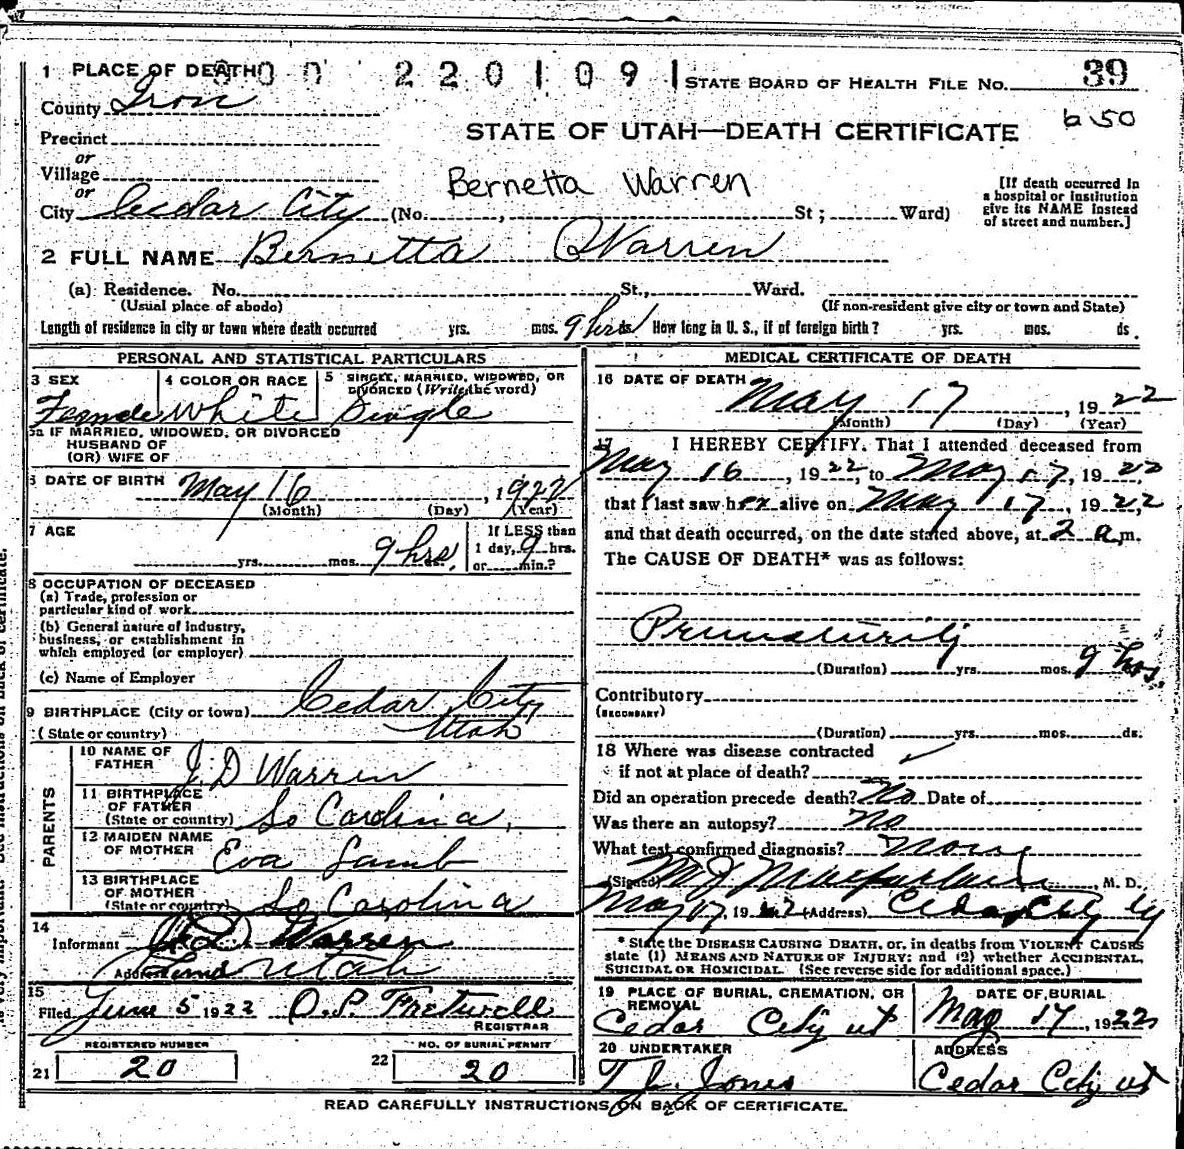 1 PLACE OF DEATH 00 2201091 STATE BOARD OF HEALTH FILE No. 39
County Iron
b 50
Precinct
STATE OF UTAH—DEATH CERTIFICATE
or
Village
or
Bernetta Warren
[If death occurred in
a hospital or institution
give its NAME instead
of street and number.]
City Cedar City (No. , St; Ward)
2 FULL NAME Bernetta Warren
(a) Residence. No. St., Ward.
(Usual place of abode) (If non-resident give city or town and State)
Length of residence in city or town where death occurred yrs. mos. 9 hrs How long in U. S., if of foreign birth? yrs. mos. ds
PERSONAL AND STATISTICAL PARTICULARS
3 SEX 4 COLOR OR RACE 5 SINGLE, MARRIED, WIDOWED, OR
DIVORCED (Write the word)
Female White Single
5a IF MARRIED, WIDOWED, OR DIVORCED
HUSBAND OF
(OR) WIFE OF
6 DATE OF BIRTH May 16, 1922
(Month) (Day) (Year)
7 AGE If LESS than
yrs. mos. 9 hrs. 1 day, 9 hrs.
or min.?
8 OCCUPATION OF DECEASED
(a) Trade, profession or
particular kind of work
(b) General nature of industry,
business, or establishment in
which employed (or employer)
(c) Name of Employer
9 BIRTHPLACE (City or town) Cedar City
(State or country) Utah
PARENTS
10 NAME OF
FATHER J. D Warren
11 BIRTHPLACE
OF FATHER
(State or country) So Carolina,
12 MAIDEN NAME
OF MOTHER Eva Lamb
13 BIRTHPLACE
OF MOTHER
(State or country) So Carolina
14
Informant Warren
Address Utah
15
Filed June 5 1922 O. P. Fretwell
REGISTRAR
REGISTERED NUMBER NO. OF BURIAL PERMIT
21 20 22 20
MEDICAL CERTIFICATE OF DEATH
16 DATE OF DEATH
May 17, 1922
(Month) (Day) (Year)
17 I HEREBY CERTIFY, That I attended deceased from
May 16, 1922, to May 17, 1922,
that I last saw her alive on May 17, 1922,
and that death occurred, on the date stated above, at 2 a.m.
The CAUSE OF DEATH* was as follows:
Prematurity
(Duration) yrs. mos. 9 hrs.
Contributory
(SECONDARY)
(Duration) yrs. mos. ds.
18 Where was disease contracted
if not at place of death?
Did an operation precede death? No Date of
Was there an autopsy? No
What test confirmed diagnosis? None
(Signed) M J Macfarlane, M. D.
May 17, 1922 (Address) Cedar City
* State the DISEASE CAUSING DEATH, or, in deaths from VIOLENT CAUSES
state (1) MEANS AND NATURE OF INJURY; and (2) whether ACCIDENTAL,
SUICIDAL OR HOMICIDAL. (See reverse side for additional space.)
19 PLACE OF BURIAL, CREMATION, OR
REMOVAL
Cedar City ut
DATE OF BURIAL
May 17, 1922
20 UNDERTAKER
T J. Jones
ADDRESS
Cedar City ut
READ CAREFULLY INSTRUCTIONS ON BACK OF CERTIFICATE.